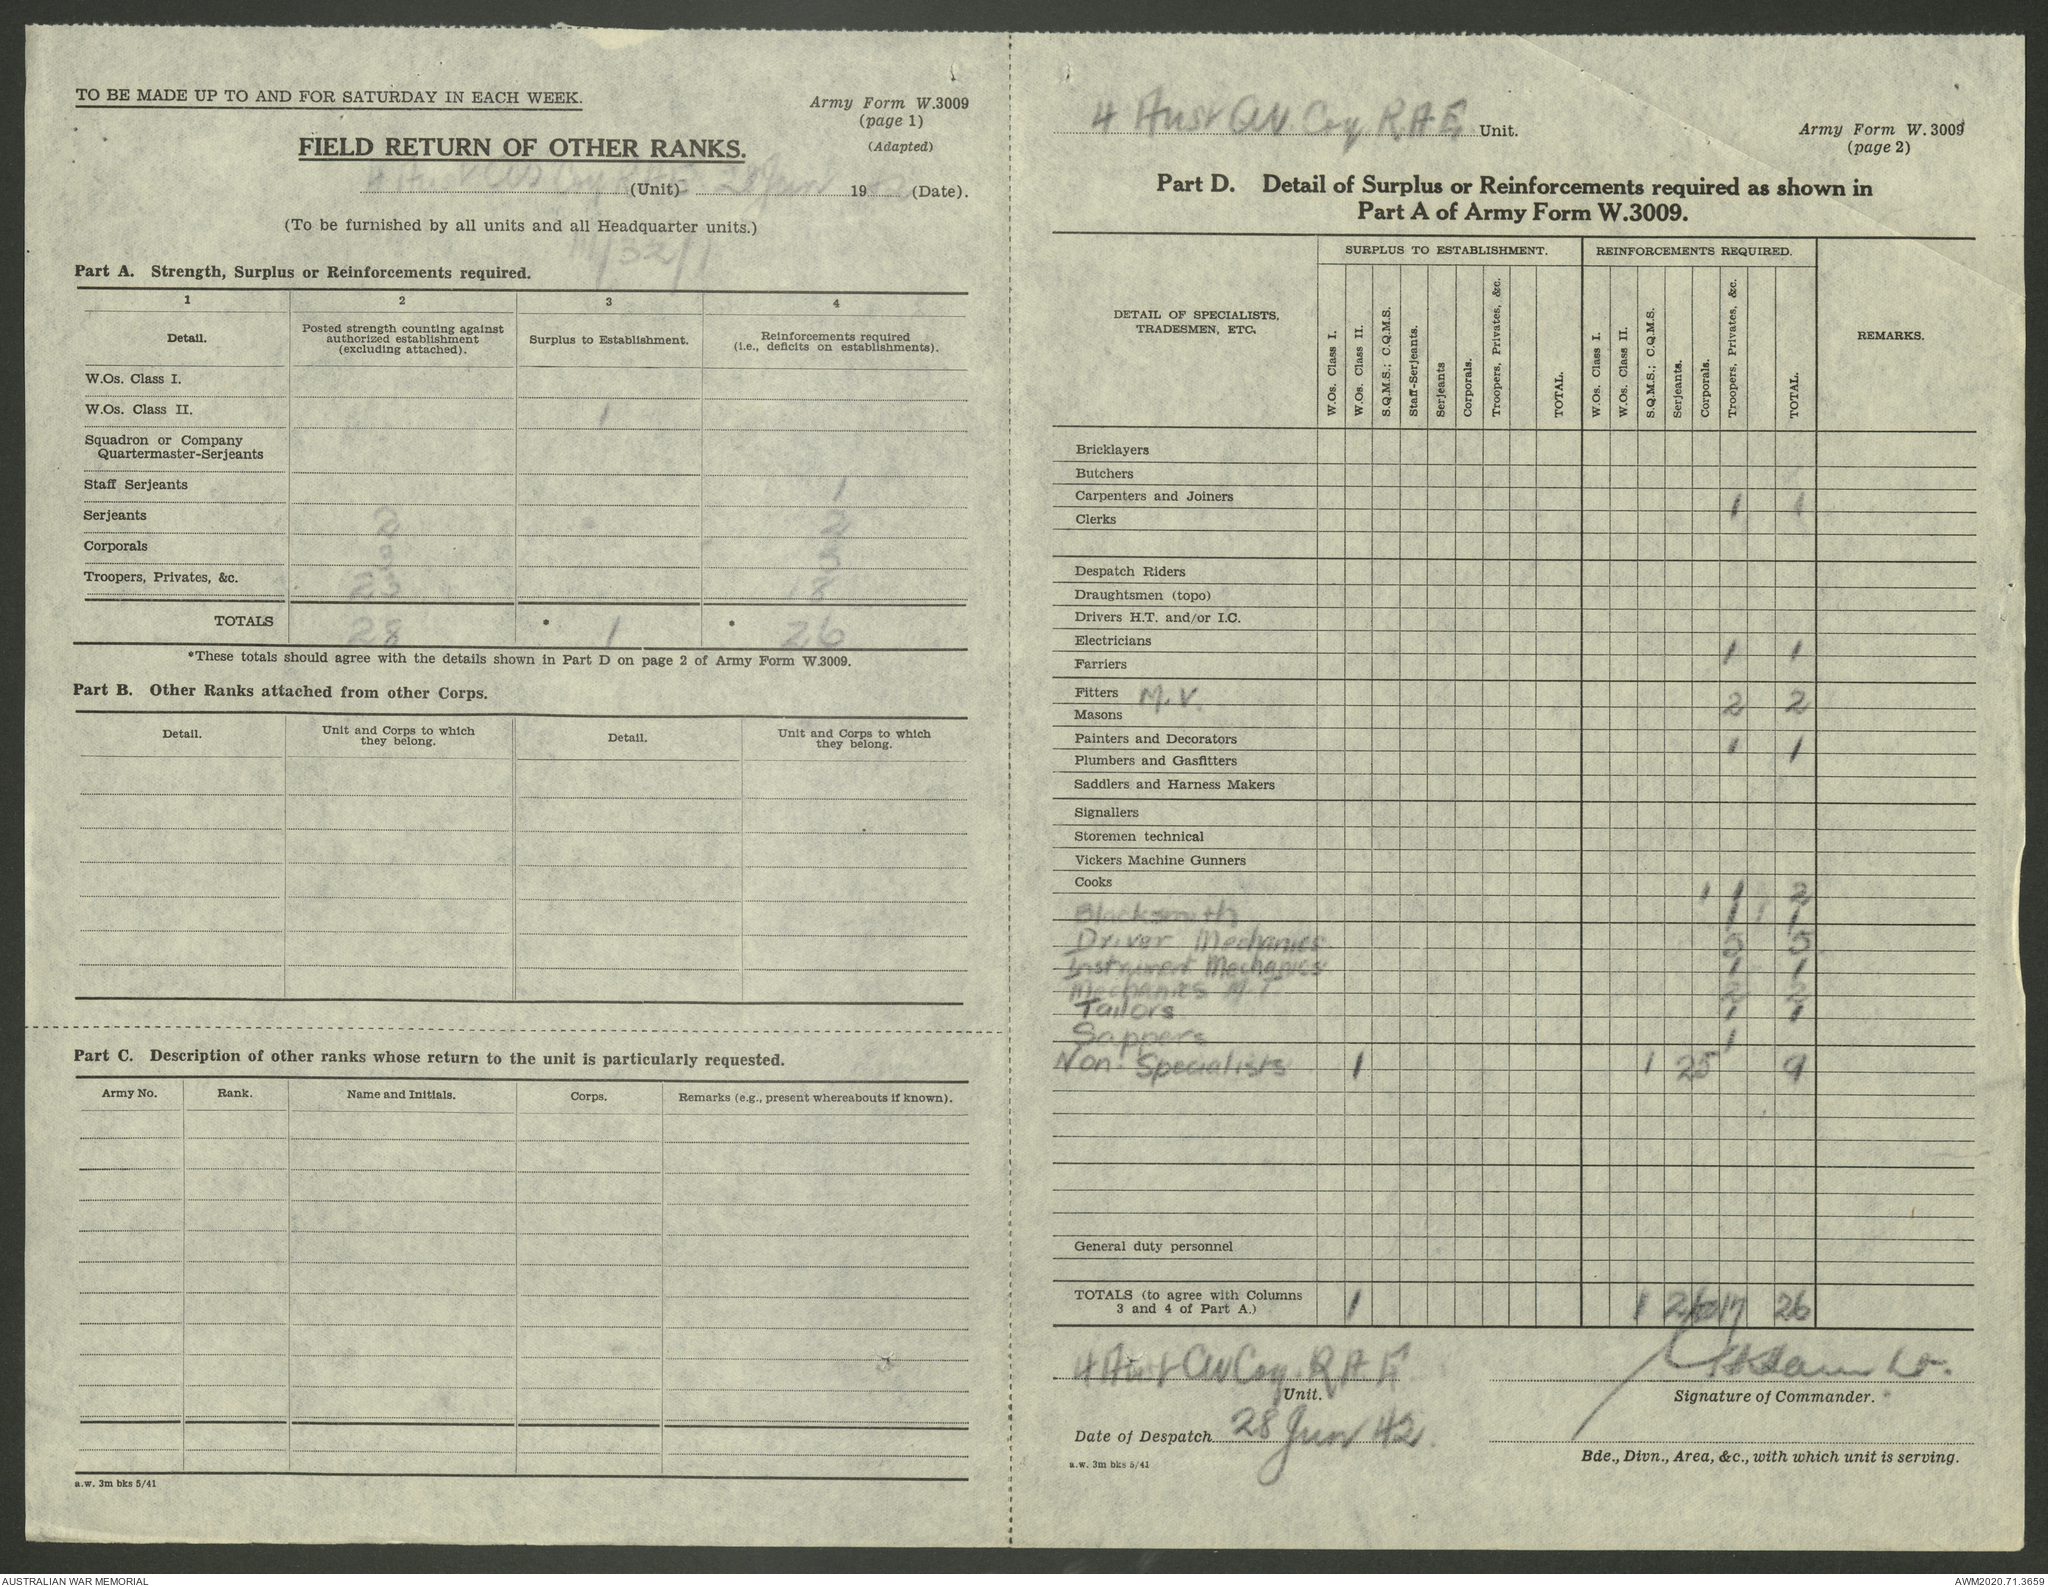 TO BE MADE UP TO AND FOR SATURDAY IN EACH WEEK.
Army Form W.3009
(page 1)
(Adapted)
FIELD RETURN OF OTHER RANKS.
(Unit) 19 (Date).
(To be furnished by all units and all Headquarter units.)
11/32/1
Part A. Strength, Surplus or Reinforcements required.
1 2 3 4
Detail. Posted strength counting against authorized establishment (excluding attached). Surplus to Establishment. Reinforcements required (i.e., deficits on establishments).
W.Os. Class I.
W.Os. Class II. 1
Squadron or Company
Quartermaster-Serjeants
Staff Serjeants 1
Serjeants 2 2
Corporals 3 5
Troopers, Privates, &c. 23 18
TOTALS 28 * 1 * 26
*These totals should agree with the details shown in Part D on page 2 of Army Form W.3009.
Part B. Other Ranks attached from other Corps.
Detail. Unit and Corps to which they belong. Detail. Unit and Corps to which they belong.
Part C. Description of other ranks whose return to the unit is particularly requested.
Army No. Rank. Name and Initials. Corps. Remarks (e.g., present whereabouts if known).
a.w. 3m bks 5/41
4 Aust Coy R A E Unit.
Army Form W.3009
(page 2)
Part D. Detail of Surplus or Reinforcements required as shown in
Part A of Army Form W.3009.
SURPLUS TO ESTABLISHMENT. REINFORCEMENTS REQUIRED.
DETAIL OF SPECIALISTS, TRADESMEN, ETC. REMARKS.
W.Os. Class I.
W.Os. Class II.
S.Q.M.S.; C.Q.M.S.
Staff-Serjeants.
Serjeants
Corporals.
Troopers, Privates, &c.
TOTAL.
W.Os. Class I.
W.Os. Class II.
S.Q.M.S.; C.Q.M.S.
Serjeants.
Corporals.
Troopers, Privates, &c.
TOTAL.
Bricklayers
Butchers
Carpenters and Joiners 1 1
Clerks
Despatch Riders
Draughtsmen (topo)
Drivers H.T. and/or I.C.
Electricians 1 1
Farriers
Fitters M.V. 2 2
Masons
Painters and Decorators 1 1
Plumbers and Gasfitters
Saddlers and Harness Makers
Signallers
Storemen technical
Vickers Machine Gunners
Cooks 1 1 2
Blacksmith 1 1
Driver Mechanics 5 5
Instrument Mechanics 1 1
Mechanics M.T 2 2
Tailors 1 1
Sappers 1
Non Specialists 1 1 2 5 9
General duty personnel
TOTALS (to agree with Columns
3 and 4 of Part A.) 1 1 2 6 17 26
4 Aust Coy R A E
Unit.
Signature of Commander.
Date of Despatch 28 Jun 42.
Bde., Divn., Area, &c., with which unit is serving.
a.w. 3m bks 5/41
AUSTRALIAN WAR MEMORIAL
AWM2020.71.3659